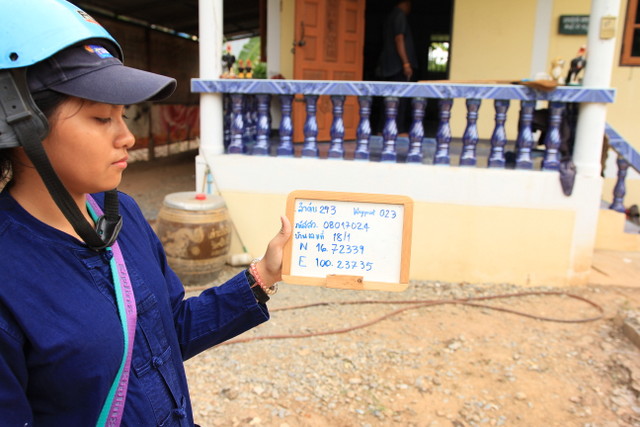 ลำดับ 293 Waypoint 023
รหัสตัว. 08017024
บ้านเลขที่ 18/1
N 16.72339
E 100.23735